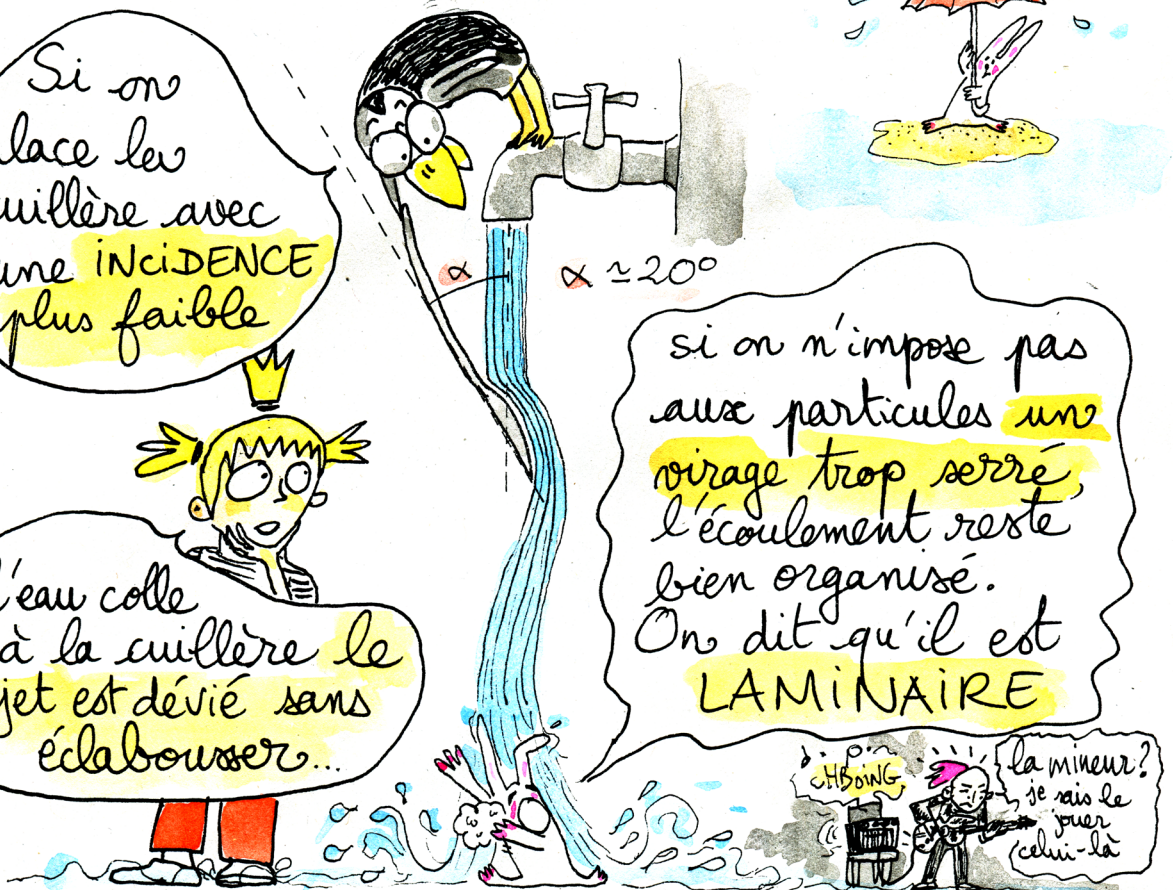 Si on
lace la
uillère avec
une INCIDENCE
plus faible
α
α ≃ 20°
si on n'impose pas
aux particules un
virage trop serré,
l'écoulement reste
bien organisé.
On dit qu'il est
LAMINAIRE
l'eau colle
à la cuillère le
jet est dévié sans
éclabousser...
CHBOING
la mineur?
je sais le
jouer
celui-là